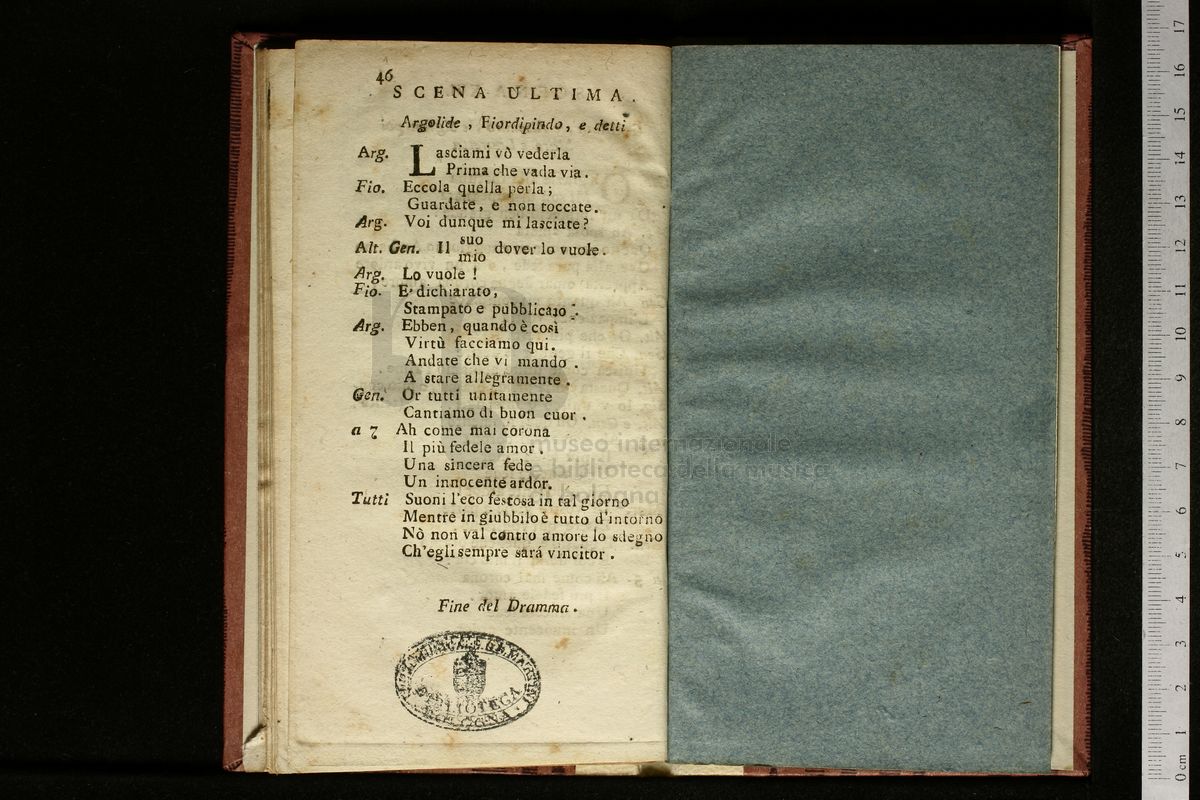 46
SCENA ULTIMA.
Argolide, Fiordipindo, e detti
Arg. Lasciami vò vederla
Prima che vada via.
Fio. Eccola quella perla;
Guardate, e non toccate.
Arg. Voi dunque mi lasciate?
suo
Alt. Gen. Il dover lo vuole.
mio
Arg. Lo vuole!
Fio. E' dichiarato,
Stampato e pubblicato.
Arg. Ebben, quando è così
Virtù facciamo qui.
Andate che vi mando.
A stare allegramente.
Gen. Or tutti unitamente
Cantiamo di buon cuor.
a 7 Ah come mai corona
Il più fedele amor.
Una sincera fede
Un innocente ardor.
Tutti Suoni l'eco festosa in tal giorno
Mentre in giubbilo è tutto d'intorno
Nò non val contro amore lo sdegno
Ch'egli sempre sará vincitor.
Fine del Dramma.
BIBLIOTECA
BOLOGNA
museo internazionale
e biblioteca della musica
bologna
17
16
15
14
13
12
11
10
9
8
7
6
5
4
3
2
1
0 cm